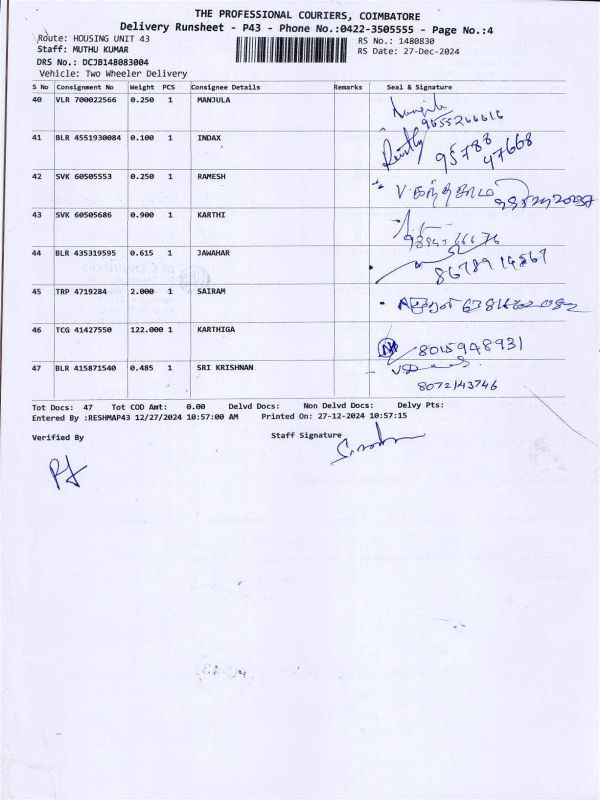 THE PROFESSIONAL COURIERS, COIMBATORE
Delivery Runsheet - P43 - Phone No.:0422-3505555 - Page No.:4
Route: HOUSING UNIT 43
RS No.: 1480830
Staff: MUTHU KUMAR
RS Date: 27-Dec-2024
DRS No.: DCJB148083004
Vehicle: Two Wheeler Delivery
S No Consignment No Weight PCS Consignee Details Remarks Seal & Signature
40 VLR 700022566 0.250 1 MANJULA
9655266616
41 BLR 4551930084 0.100 1 INDAX
95788
47668
42 SVK 60505553 0.250 1 RAMESH
43 SVK 60505686 0.900 1 KARTHI
44 BLR 435319595 0.615 1 JAWAHAR
8678914567
45 TRP 4719284 2.000 1 SAIRAM
46 TCG 41427550 122.000 1 KARTHIGA
8015948931
47 BLR 415871540 0.485 1 SRI KRISHNAN
8072143746
Tot Docs: 47 Tot COD Amt: 0.00 Delvd Docs: Non Delvd Docs: Delvy Pts:
Entered By :RESHMAP43 12/27/2024 10:57:00 AM Printed On: 27-12-2024 10:57:15
Verified By Staff Signature